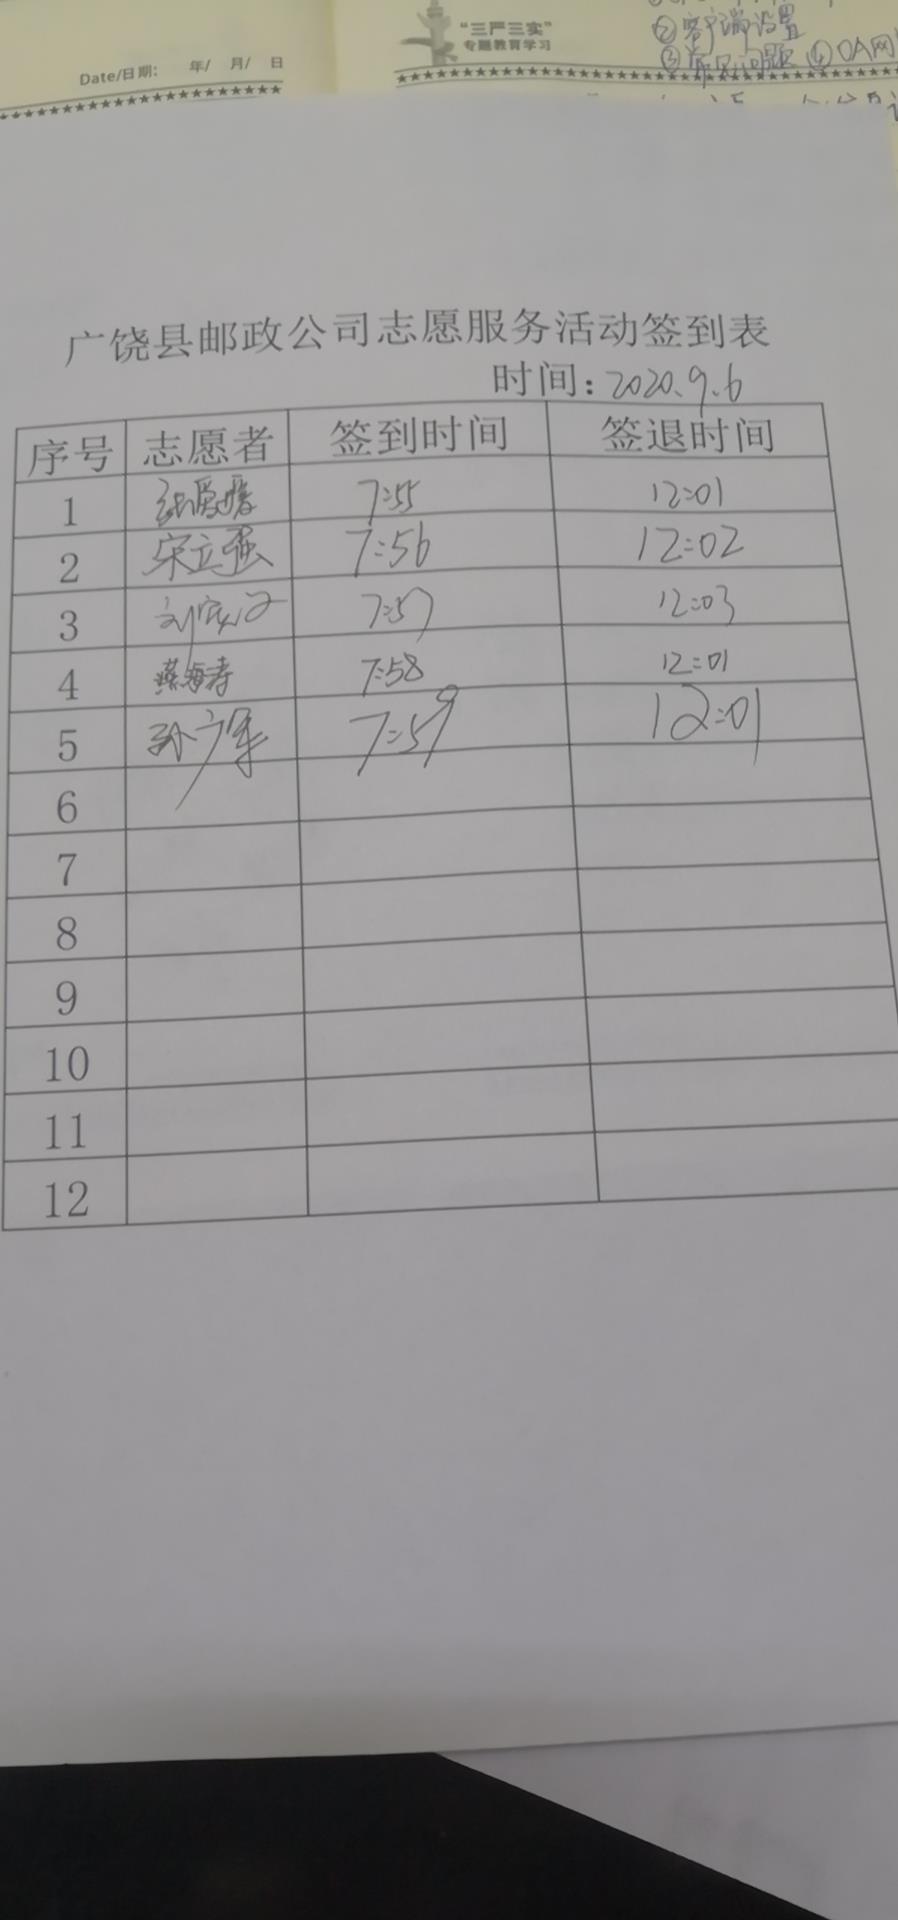 "三严三实"
专题教育学习
Date/日期: 年/ 月/ 日
②客户端设置
③常见问题 ④OA网
广饶县邮政公司志愿服务活动签到表
时间:2020.9.6
序号 志愿者 签到时间 签退时间
1 7:55 12:01
2 宋立强 7:56 12:02
3 7:57 12:03
4 燕海涛 7:58 12:01
5 孙少军 7:59 12:01
6
7
8
9
10
11
12